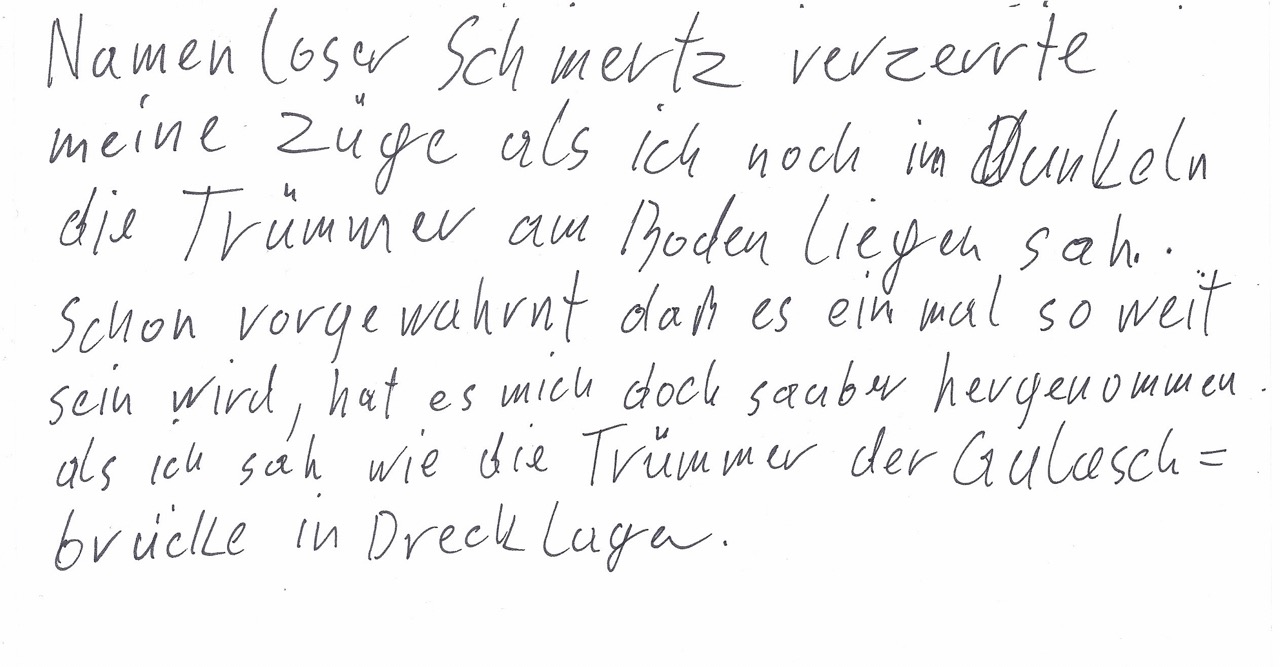 Namenloser Schmertz verzerrte
meine Züge als ich noch im Dunkeln
die Trümmer am Boden liegen sah.
Schon vorgewahrnt daß es einmal so weit
sein wird, hat es mich doch sauber hergenommen
als ich sah wie die Trümmer der Gulasch=
brücke in Dreck lagen.